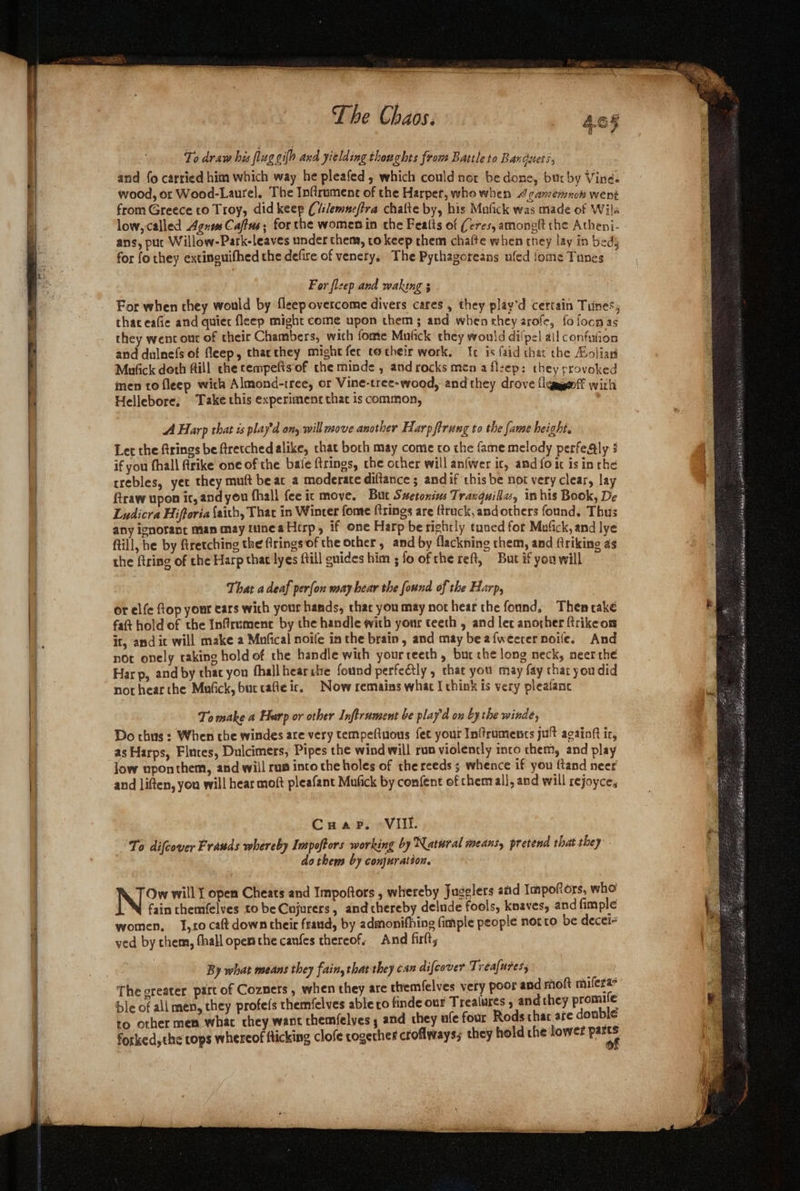 The Chaos. 405
To draw his sluggish and yielding thoughts from Battle to Banquets,
and ſo carried him which way he pleaſed, which could not be done, but by Vine-
wood, or Wood-Laurel. The Inſtrument of the Harper, who when Agamemnon went
from Greece to Troy, did keep Clilemneſtra chaſte by, his Muſick was made of Wil-
low, called Agnus Caſtus; for the women in the Feaſts of Ceres, amongſt the Atheni-
ans, put Willow-Park-leaves under them, to keep them chaſte when they lay in bed;
for ſo they extinguiſhed the deſire of venery. The Pythagoreans uſed ſome Tunes
For ſleep and waking;
For when they would by ſleep overcome divers cares, they play'd certain Tunes,
that eaſie and quiet ſleep might come upon them; and when they aroſe, ſo ſoon as
they went out of their Chambers, with ſome Muſick they would diſpel all confuſion
and dulneſs of ſleep, that they might ſet to their work. It is ſaid that the Æolian
Muſick doth ſtill the tempeſts of the minde, and rocks men aſleep: they provoked
men to ſleep with Almond-tree, or Vine-tree-wood, and they drove off with
Hellebore. Take this experiment that is common,
A Harp that is play'd on, will move another Harp ſtrung to the ſame height.
Let the ſtrings be ſtretched alike, that both may come to the ſame melody perfectly:
if you ſhall ſtrike one of the baſe ſtrings, the other will anſwer it, and ſo it is in the
trebles, yet they muſt be at a moderate diſtance; and if this be not very clear, lay
ſtraw upon it, and you ſhall ſee it move. But Suetonius Tranquillus, in his Book, De
Ludicra Hiſtoria ſaith, That in Winter ſome ſtrings are ſtruck, and others ſound. Thus
any ignorant man may tune a Harp, if one Harp be rightly tuned for Muſick, and lye
ſtill, he by ſtretching the ſtrings of the other, and by ſlackning them, and ſtriking as
the ſtring of the Harp that lyes ſtill guides him; ſo of the reſt, But if you will
That a deaf perſon may hear the ſound of the Harp,
or elſe ſtop your ears with your hands, that you may not hear the ſound, Then take
faſt hold of the Inſtrument by the handle with your teeth, and let another ſtrike on
it, and it will make a Muſical noiſe in the brain, and may be a ſweeter noiſe. And
not onely taking hold of the handle with your teeth, but the long neck, neer the
Harp, and by that you ſhall hear the ſound perfectly, that you may ſay that you did
not hear the Muſick, but taſte it. Now remains what I think is very pleaſant
To make a Harp or other Inſtrument be play'd on by the winde,
Do thus: When the windes are very tempeſtuous ſet your Inſtruments juſt againſt it,
as Harps, Flutes, Dulcimers, Pipes the wind will run violently into them, and play
low upon them, and will run into the holes of the reeds; whence if you ſtand neer
and liſten, you will hear moſt pleaſant Muſick by conſent of them all, and will rejoyce,
CHAP. VIII.
To diſcover Frauds whereby Impoſtors working by Natural means, pretend that they
do them by conjuration.
NOw will I open Cheats and Impoſtors, whereby Jugglers and Impoſtors, who
fain themſelves to be Cujurers, and thereby delude fools, knaves, and ſimple
women. I, to caſt down their fraud, by admoniſhing ſimple people not to be decei-
ved by them, ſhall open the cauſes thereof. And firſt,
By what means they fain, that they can diſcover Treaſures,
The greater part of Cozners, when they are themſelves very poor and moſt miſera-
ble of all men, they profeſs themſelves able to finde out Treaſures, and they promiſe
to other men what they want themſelves, and they uſe four Rods that are double
forked, the tops whereof ſticking cloſe together croſſways, they hold the lower parts
of